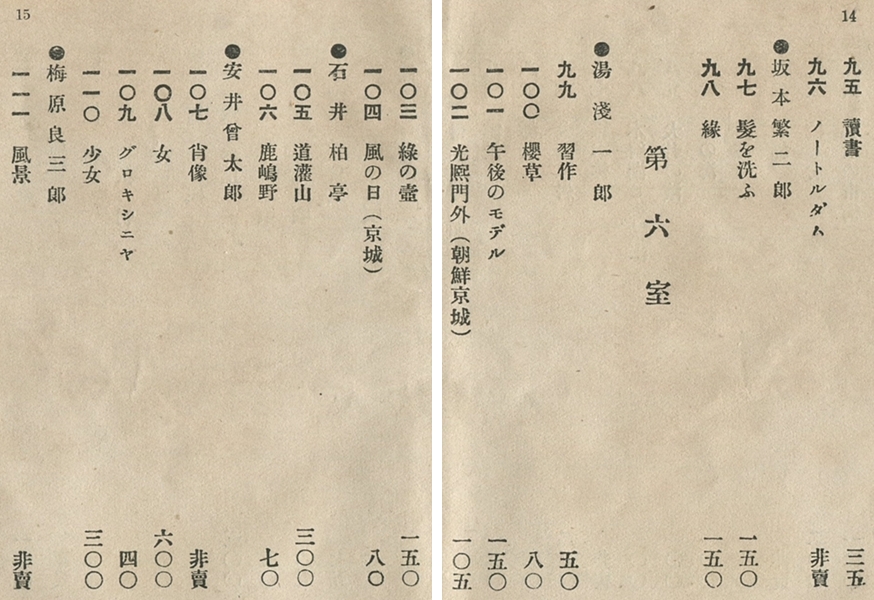 14
九五 讀書 三五
九六 ノートルダム 非賣
●坂本繁二郎
九七 髮を洗ふ 一五〇
九八 緣 一五〇
第六室
●湯淺一郎
九九 習作 五〇
一〇〇 櫻草 八〇
一〇一 午後のモデル 一五〇
一〇二 光熙門外(朝鮮京城) 一〇五
15
一〇三 綠の壺 一五〇
一〇四 風の日(京城) 八〇
●石井柏亭
一〇五 道灌山 三〇〇
一〇六 鹿嶋野 七〇
●安井曾太郎
一〇七 肖像 非賣
一〇八 女 六〇〇
一〇九 グロキシニヤ 四〇
一一〇 少女 三〇〇
●梅原良三郎
一一一 風景 非賣